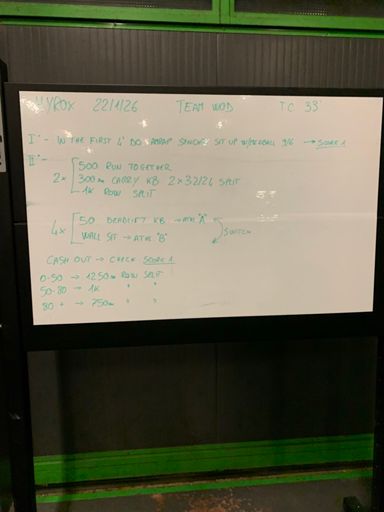 HYROX 22/1/26 TEAM WOD TC 33'
I° - IN THE FIRST 4' DO AMRAP SYNCHRO SIT UP W/MEDBALL 9/6 → SCORE 1
II° -
2x 500 RUN TOGETHER
300m CARRY KB 2x32/24 SPLIT
1K ROW SPLIT
4x 50 DEADLIFT KB → ATH "A"
WALL SIT → ATH "B"
SWITCH
CASH OUT → CHECK SCORE 1
0-50 → 1250m ROW SPLIT
50-80 → 1K " "
80 + → 750m " "